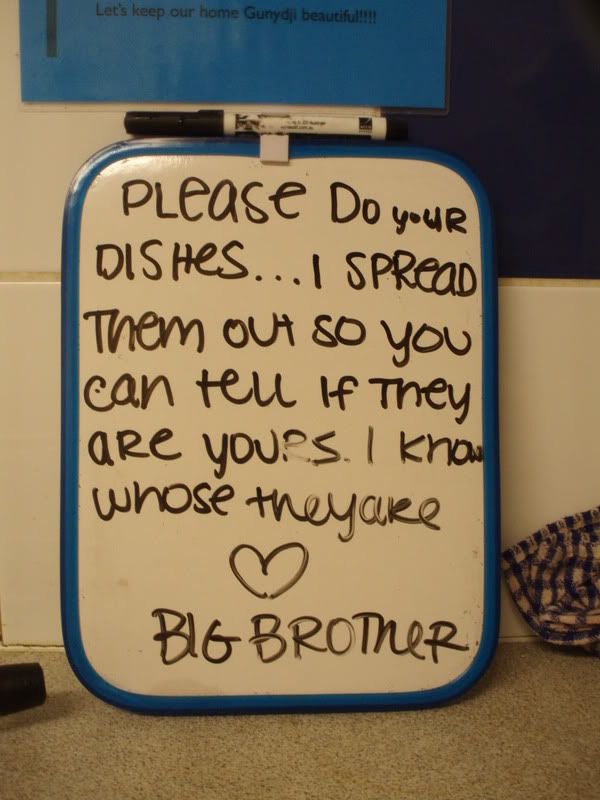 Let's keep our home Gunydji beautiful!!!!
PLeaSe Do youR
DISHes...I SPReaD
Them out so you
can tell If They
aRe youRS. I know
whose they aRe
♡
BIG BROTHeR